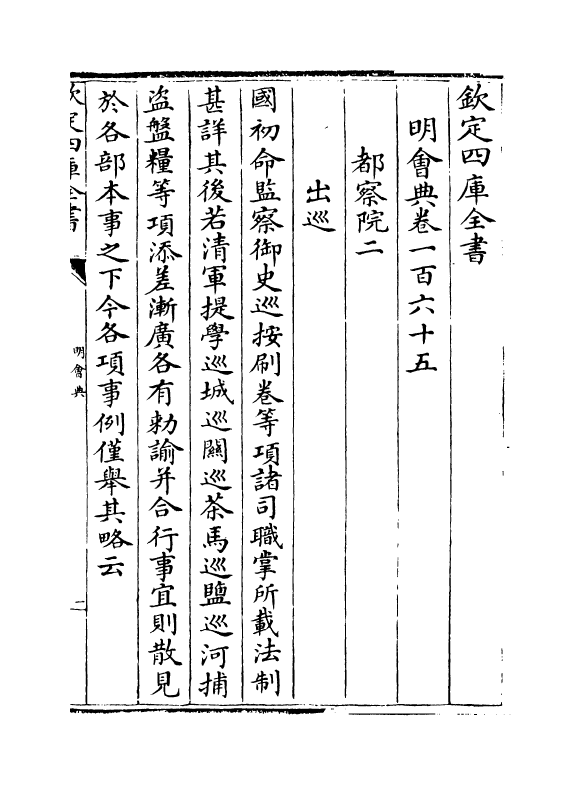 欽定四庫全書
明會典卷一百六十五
都察院二
出巡
國初命監察御史巡按刷卷等項諸司職掌所載法制
甚詳其後若清軍提學巡城巡關巡茶馬巡鹽巡河捕
盗盤糧等項添差漸廣各有勅諭并合行事宜則散見
於各部本事之下今各項事例僅舉其略云
欽定四庫全書
明會典
二